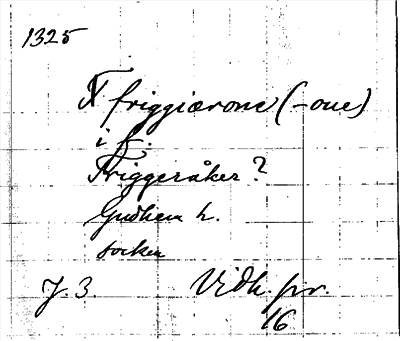 1325
friggiærone (-oue)
i f.
Friggeråker?
Gudhem h.
socken
J. 3. Vidh. pr.
16